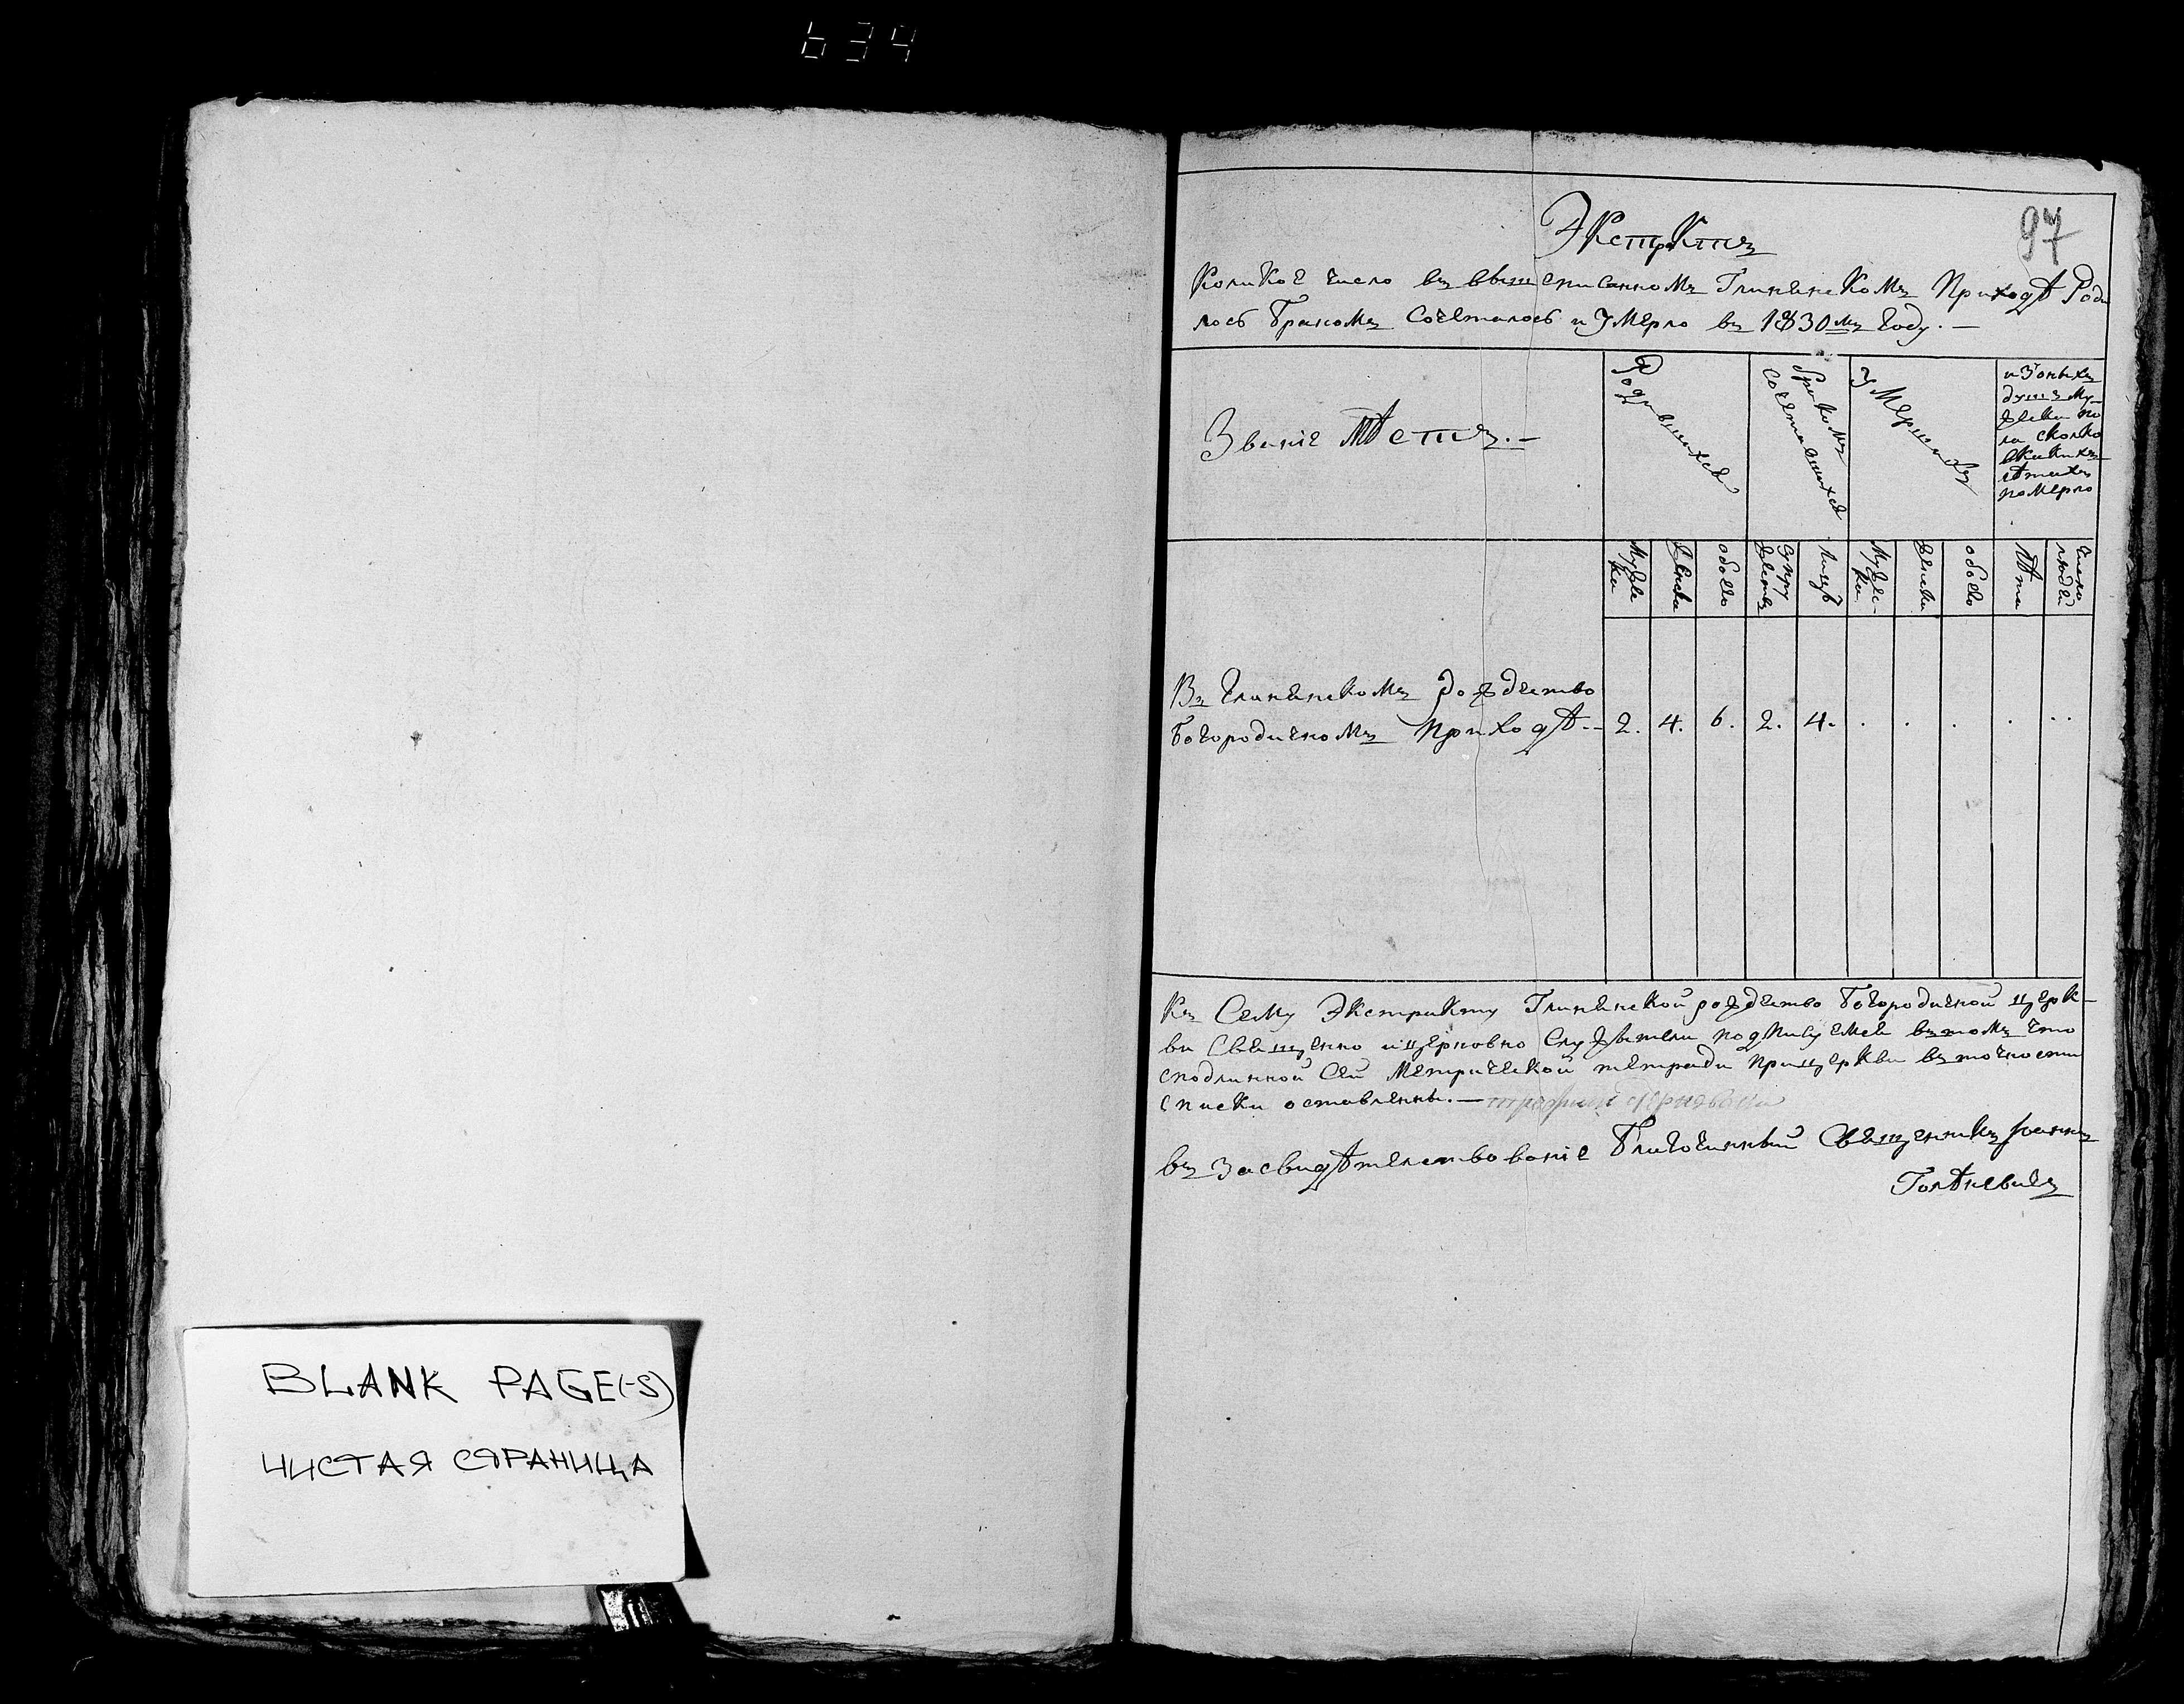 634
97
Экстрактъ
Коликое число въ вышеписанномъ Глинянскомъ Приходѣ Роди
лось бракомъ Сочеталось и Умерло въ 1830мъ году. —
Званіе Мѣстъ. —
Родившихся
бракомъ
Сочетавшихся
Умершихъ
изъ оныхъ
душъ му-
жеска по
ла сколко
вкакихъ
лѣтахъ
померло
Мужес
ка
Женска
обоего
Супру
жествъ
лицъ
Мужес-
ка
женска
обоего
Лѣта
число
людей
Въ Глинянскомъ рождество
Богородичномъ Приходѣ. — 2. 4. 6. 2. 4. . . . . ..
Къ Сему Экстракту Глинянской рождество Богородичной церк-
ви Священно ицерковно Служители подписуемся втомъ что
сподлинной Сей Метрической тетради прицеркви въ точности
списки оставленны. —
въ Засвидѣтелствованіе Благочинный Священникъ Іоаннъ
BLANK PAGE(-S)
ЧИСТАЯ СТРАНИЦА